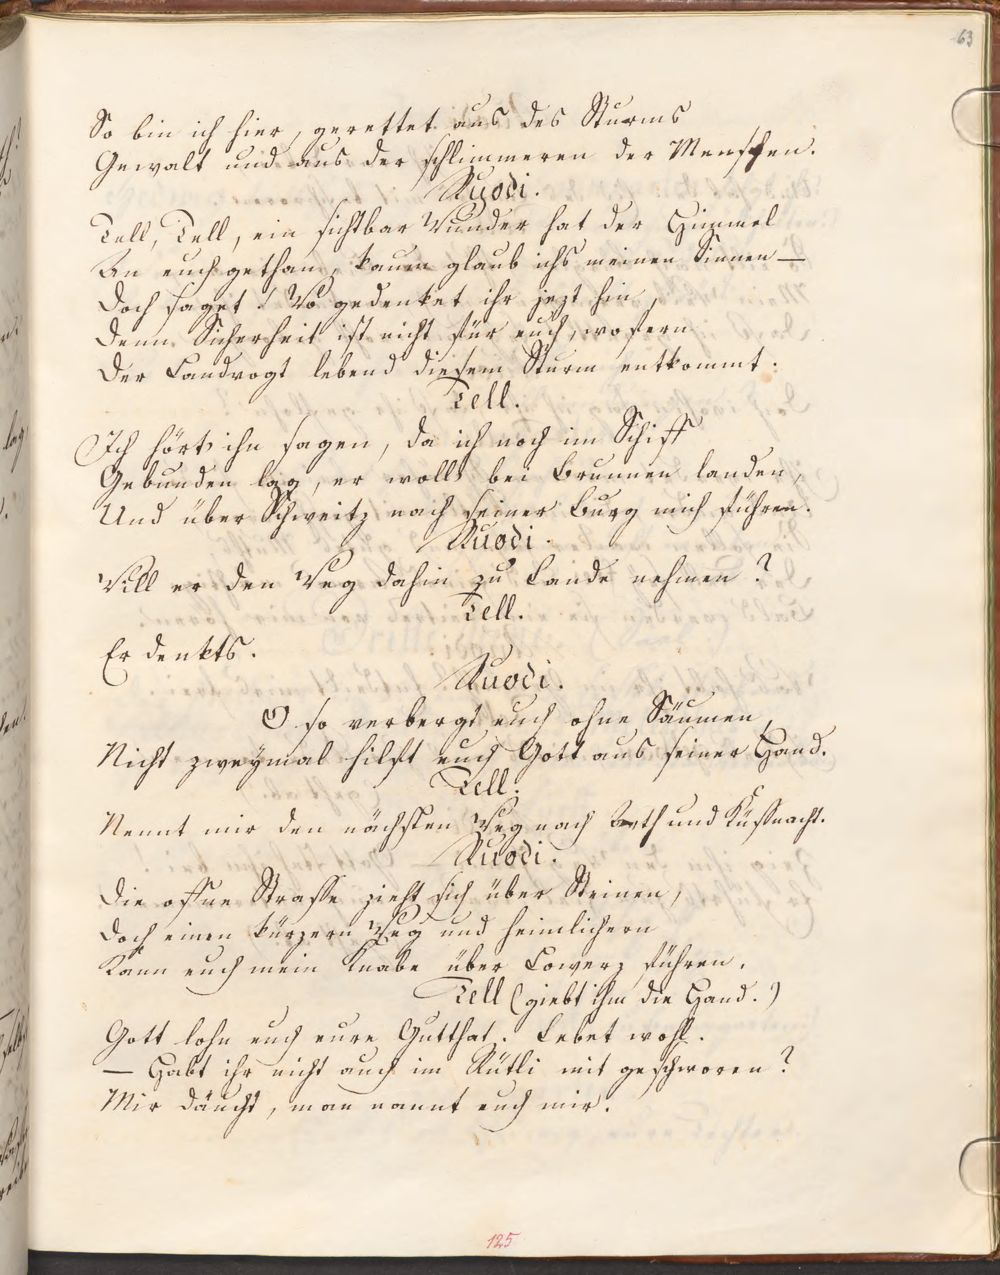 63
So bin ich hier, gerettet aus des Sturms
Gewalt und aus der schlimmeren der Menschen.
Ruodi.
Tell, Tell, ein sichtbar Wunder hat der Himmel
An euch gethan, kaum glaub ichs meinen Sinnen —
Doch saget! Wo gedenket ihr jezt hin,
Denn Sicherheit ist nicht für euch, wofern
Der Landvogt lebend diesem Sturm entkommt.
Tell.
Ich hört' ihn sagen, da ich noch im Schiff
Gebunden lag, er woll' bei Brunnen landen,
Und über Schweitz nach seiner Burg mich führen.
Ruodi.
Will er den Weg dahin zu Lande nehmen?
Tell.
Er denkts.
Ruodi.
O so verbergt euch ohne Säumen,
Nicht zweymal hilft euch Gott aus seiner Hand.
Tell.
Nennt mir den nächsten Weg nach Arth und Küßnacht.
Ruodi.
Die offne Strasse zieht sich über Steinen,
Doch einen kürzern Weg und heimlichern
Kann euch mein Knabe über Lowerz führen.
Tell (giebt ihm die Hand.)
Gott lohn euch eure Gutthat. Lebet wohl.
— Habt ihr nicht auch im Rütli mit geschworen?
Mir däucht, man nannt euch mir.
125